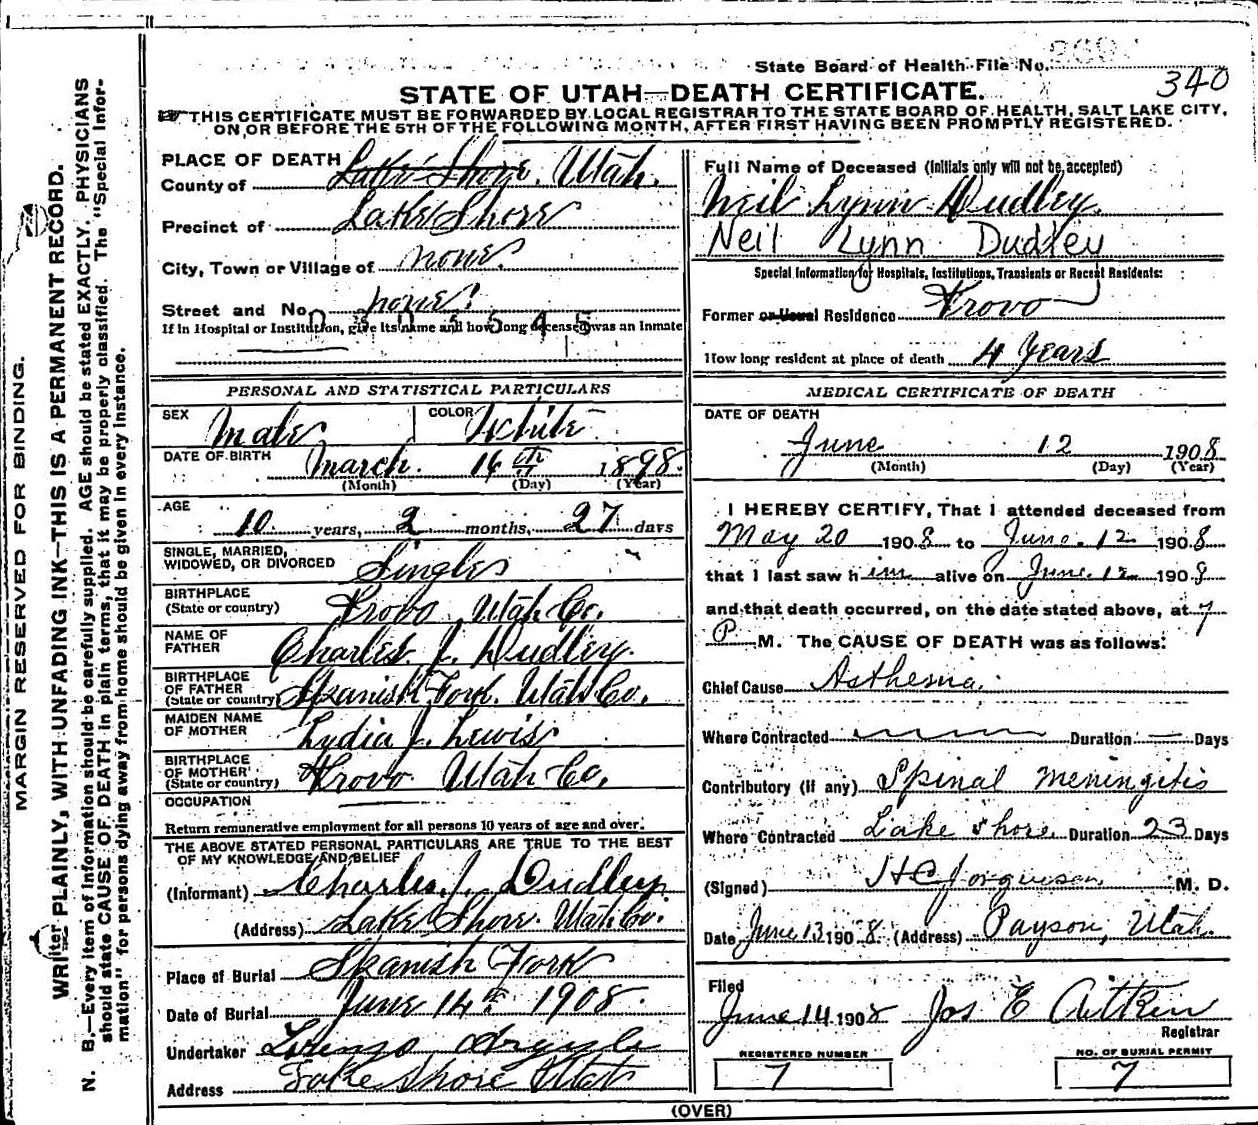 State Board of Health File No.
340
STATE OF UTAH—DEATH CERTIFICATE.
THIS CERTIFICATE MUST BE FORWARDED BY LOCAL REGISTRAR TO THE STATE BOARD OF HEALTH, SALT LAKE CITY,
ON OR BEFORE THE 5TH OF THE FOLLOWING MONTH, AFTER FIRST HAVING BEEN PROMPTLY REGISTERED.
MARGIN RESERVED FOR BINDING.
WRITE PLAINLY, WITH UNFADING INK—THIS IS A PERMANENT RECORD.
N. B.—Every item of information should be carefully supplied. AGE should be stated EXACTLY. PHYSICIANS
should state CAUSE OF DEATH in plain terms, that it may be properly classified. The "Special Infor-
mation" for persons dying away from home should be given in every instance.
PLACE OF DEATH
County of Lake Shore. Utah.
Precinct of Lake Shore
City, Town or Village of none
Street and No. none
If in Hospital or Institution, give its name and how long deceased was an inmate
PERSONAL AND STATISTICAL PARTICULARS
SEX Male COLOR White
DATE OF BIRTH March. 14th 1898.
(Month) (Day) (Year)
AGE
10 years, 2 months, 27 days
SINGLE, MARRIED,
WIDOWED, OR DIVORCED Single
BIRTHPLACE
(State or country) Provo Utah Co.
NAME OF
FATHER Charles J. Dudley.
BIRTHPLACE
OF FATHER
(State or country) Spanish Fork. Utah Co.
MAIDEN NAME
OF MOTHER Lydia J. Lewis
BIRTHPLACE
OF MOTHER
(State or country) Provo Utah Co.
OCCUPATION
Return remunerative employment for all persons 10 years of age and over.
THE ABOVE STATED PERSONAL PARTICULARS ARE TRUE TO THE BEST
OF MY KNOWLEDGE AND BELIEF
(Informant) Charles J. Dudley
(Address) Lake Shore. Utah Co.
Place of Burial Spanish Fork
Date of Burial June 14th 1908.
Undertaker Lorenzo Argyle
Address Lake Shore Utah
Full Name of Deceased (Initials only will not be accepted)
Neil Lynn Dudley.
Neil Lynn Dudley
Special Information for Hospitals, Institutions, Transients or Recent Residents:
Former or Usual Residence Provo
How long resident at place of death 4 Years
MEDICAL CERTIFICATE OF DEATH
DATE OF DEATH
June 12 1908
(Month) (Day) (Year)
I HEREBY CERTIFY, That I attended deceased from
May 20 1908 to June 12 1908
that I last saw him alive on June 12 1908
and that death occurred, on the date stated above, at 7
P M. The CAUSE OF DEATH was as follows:
Chief Cause Asthenia.
Where Contracted Duration — Days
Contributory (if any) Spinal meningitis
Where Contracted Lake Shore Duration 23 Days
(Signed) M. D.
Date June 13 1908 (Address) Payson, Utah.
Filed
June 14 1908 Jos E Aitken
Registrar
REGISTERED NUMBER
7
NO. OF BURIAL PERMIT
7
(OVER)